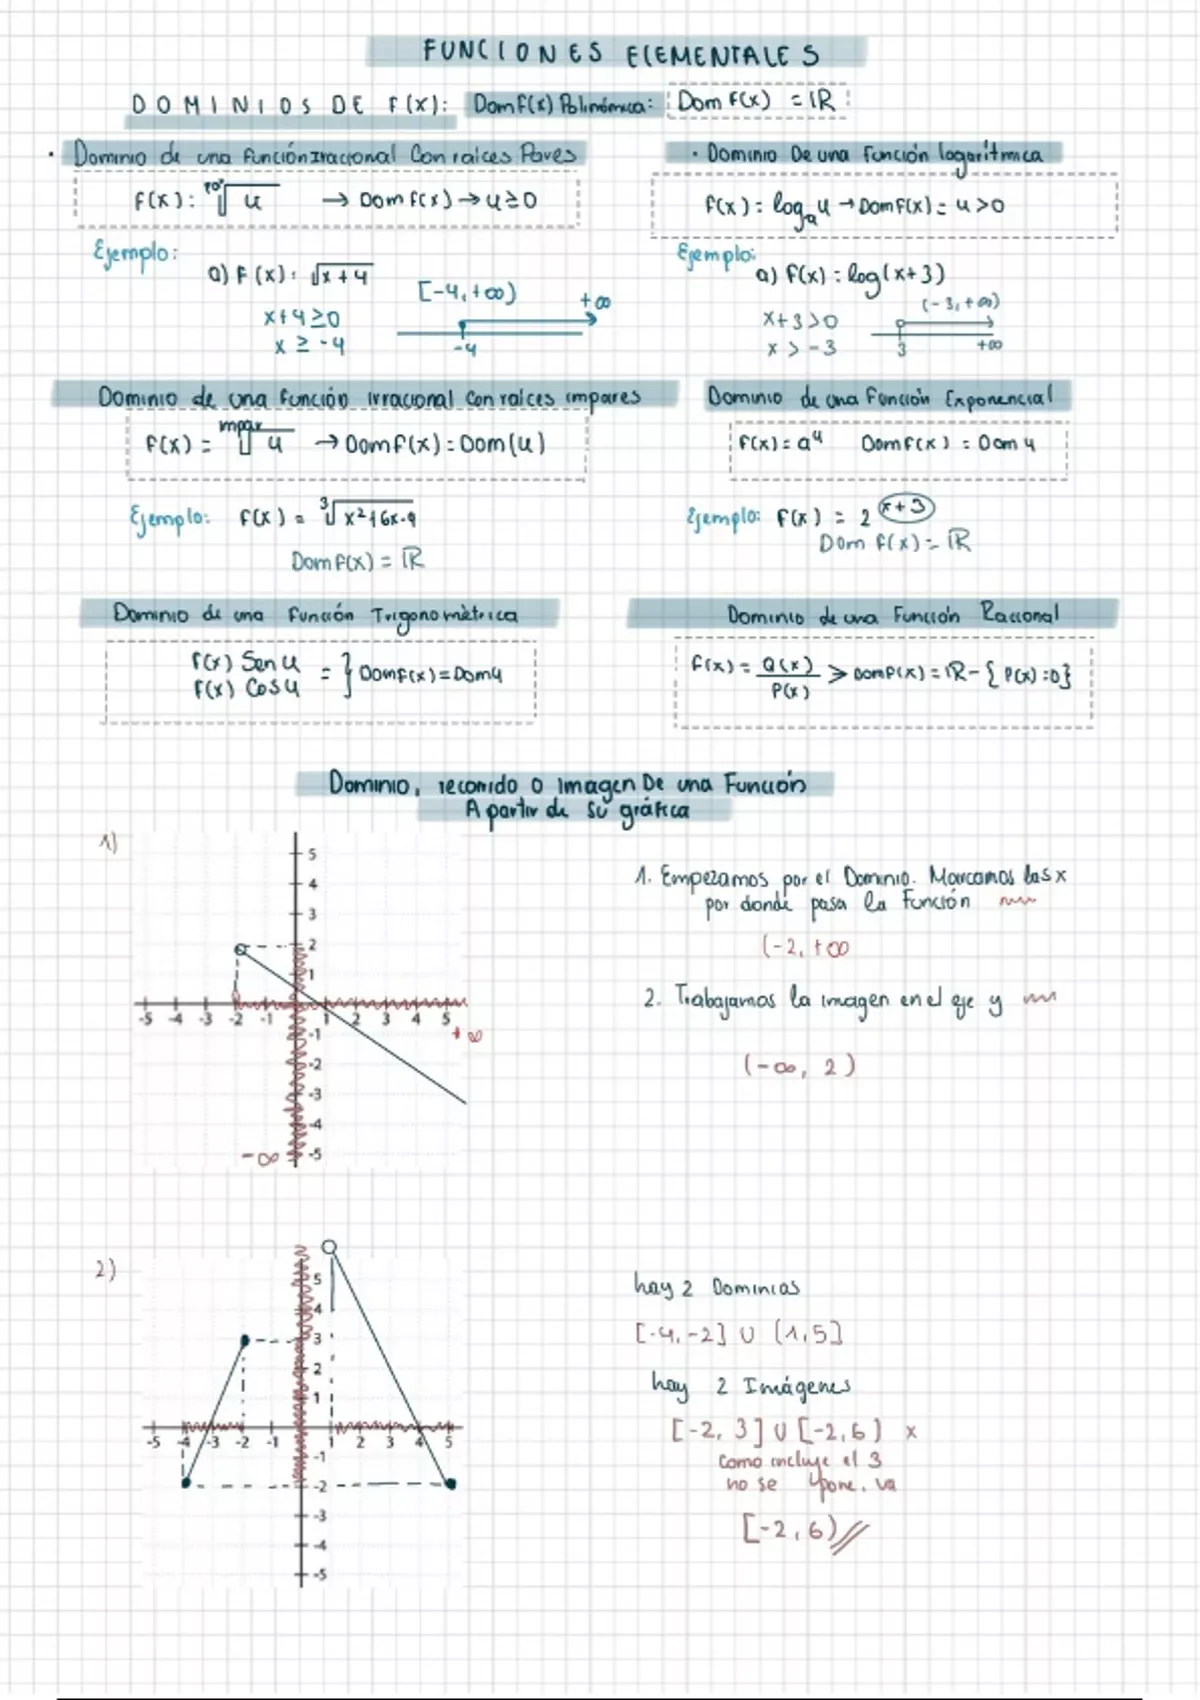 FUNCIONES ELEMENTALES
DOMINIOS DE F(X): Dom F(x) Polinómica: Dom F(x) = ℝ
· Dominio de una función Irracional Con raíces Pares
F(x): par√u → Dom f(x) → u ≥ 0
Ejemplo:
a) F(x): √x+4
[-4, +∞)
x+4 ≥ 0
x ≥ -4
+∞
-4
· Dominio De una Función logarítmica
F(x): logₐu → Dom F(x) = u > 0
Ejemplo:
a) f(x): log(x+3)
(-3, +∞)
x+3 > 0
x > -3
3 +∞
Dominio de una función irracional Con raíces impares
F(x) = impar√u → Dom F(x) = Dom (u)
Ejemplo: F(x) = ³√x²+6x-9
Dom F(x) = ℝ
Dominio de una Función Exponencial
F(x) = aᵘ Dom F(x) = Dom u
Ejemplo: F(x) = 2ˣ⁺³
Dom f(x) = ℝ
Dominio de una función Trigonomètrica
F(x) Sen u
F(x) Cos u
= } Dom F(x) = Dom u
Dominio de una Función Racional
F(x) = Q(x)/P(x) > Dom P(x) = ℝ - { P(x) = 0}
Dominio, recorrido o Imagen De una Función
A partir de su gráfica
1)
5
4
3
2
1
-5 -4 -3 -2 -1 1 2 3 4 5
+∞
-1
-2
-3
-4
-∞ -5
1. Empezamos por el Dominio. Marcamos las x
por donde pasa la Función
(-2, +∞
2. Trabajamos la imagen en el eje y
(-∞, 2)
2)
5
4
3
2
1
-5 -4 -3 -2 -1 1 2 3 4 5
-1
-2
-3
-4
-5
hay 2 Dominios
[-4, -2] U (1, 5]
hay 2 Imágenes
[-2, 3] U [-2, 6) x
Como incluye el 3
no se pone, va
[-2, 6)